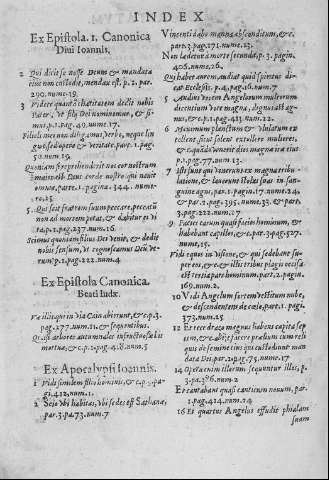 INDEX
Ex Epistola. 1. Canonica
Divi Ioannis.
2 Qui dicit se nosse Deum & mandata
eius non custodit, mendax est, p. 2. par.
290. nume. 39.
3 Videte quam charitatem dedit nobis
Pater, ut filij Dei nominemur, &
simus, p. 1. pag. 49. nume. 17.
Filioli mei non diligamus verbo, neque lin
gua, sed opere & veritate, par. 1. pag.
50. num. 19.
Quoniam si reprehenderit nos cor nostrum
maior est Deus corde nostro qui novit
omnia, parte. 1. pagina. 344. nume
ro. 25.
5 Qui scit fratrem suum peccare, peccatū
non ad mortem petat, & dabitur ei vi
ta, p. 2. pag. 237. num. 16.
Scimus quoniam filius Dei venit, & dedit
nobis sensum, ut cognoscamus Deū ve-
rum, p. 1. pag. 222. num. 4
Ex Epistola Canonica.
Beati Iudæ.
Væ illis qui in via Cain abierunt, & c. p. 3.
pag. 277. num. 11. & sequentibus.
Quasi arbores autumnales infructuosæ bis
mortuæ, & c. p. 2. pag. 418. num. 5
Ex Apocalypsi Ioannis.
1 Vidi similem filio hominis, & c. p. 3. pa-
gi. 412. num. 1.
2 Scio ubi habitas, ubi sedes est Sathanæ,
par. 3. pa. 73. num. 7
Vincenti dabo manna absconditum, & c.
par. 3. pag. 271. nume. 13.
Non lædetur à morte secunda, p. 3. pagin.
406. nume. 26.
Qui habet aurem, audiat quid spiritus di-
cat Ecclesijs. p. 4. pag. 16. num. 7
5 Audivi vocem Angelorum multorum
dicentium voce magna, dignus est ag-
nus, & c. par. 1. pag. 223. num. 21.
6 Mons
7 Isti sunt qui venerunt ex magna tribu-
latione, & laverunt stolas suas in san-
guine agni, par. 1. pagin. 17. nume. 24.
& par. 2. pag. 395. nume. 33. & part.
3. pag. 222. num. 17
9 Facies earum quasi facies hominum, &
habebant capillos, & c. par. 3. pag. 527.
nume. 15.
Vidi equos in visione, & qui sedebant su-
per eos, & c. & illis tribus plagis occisa
est tertia pars hominum. par. 2. pagin.
169. num. 2.
10 Vidi Angelum fortem vestitum nube,
& descendentem de cælo, part. 1. pagi.
373. num. 25
12 Et tecce draco magnus habens capita sep
tem, & c. abijt facere prælium cum reli
quis de semine eius qui custodiunt man
data Dei, par. 2. pag. 75. nume. 17
14 Opera enim illorum sequuntur illos, p.
3. pa. 386. num. 2
Et cantabant quasi canticum novum, par.
1. pag. 414. num. 14
16 Et quartus Angelus effudit phialam
suam